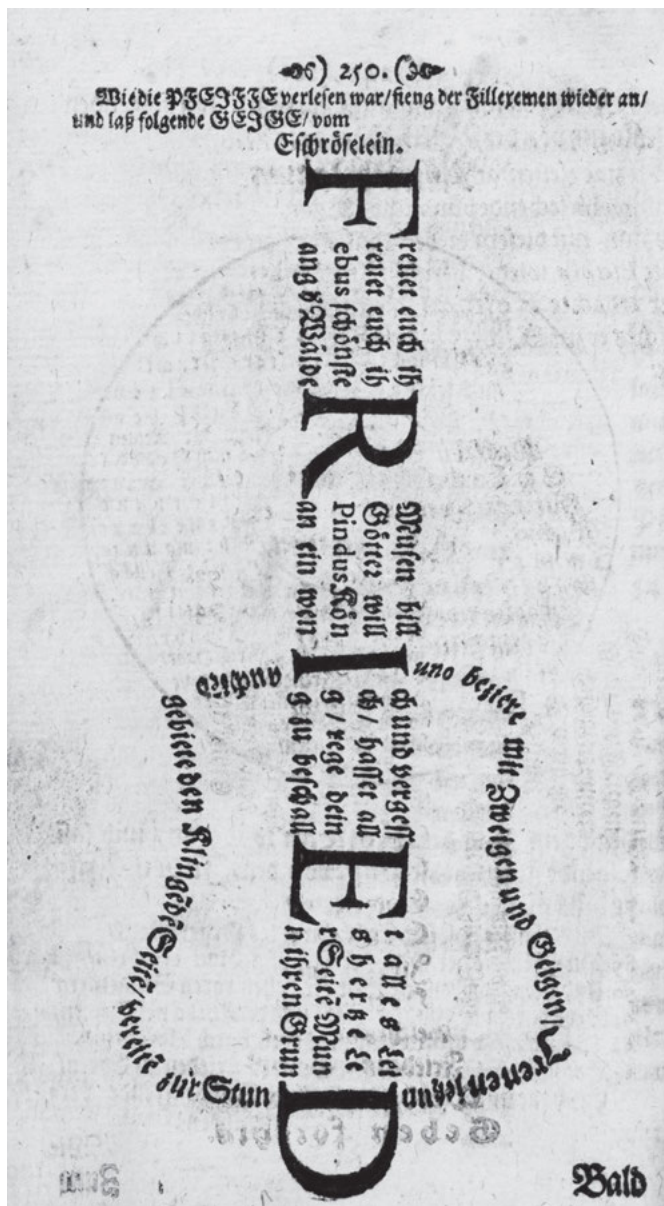 ) 250. (
Wie die PFEIFFE verlesen war/ fieng der Fillexemen wieder an/
und laß folgende GEIGE/ vom
Eschröselein.
F
reuet euch ih
reuet euch ih
ebus schönste
ang d Wälde
R
Weisen hill
Götter will
Pindus Kön
an ein wen
I
ch und vergess
ch/ hasset all
g/ rege dein
g zu beschall
E
t alles Lei
s hertze Le
r Seitē Mun
n ihren Grun
D
mit Zweigen und Geigen/ Irenen jetzun
gebiete den Klingēdē Seitē/ bereite zur Stun
Bald